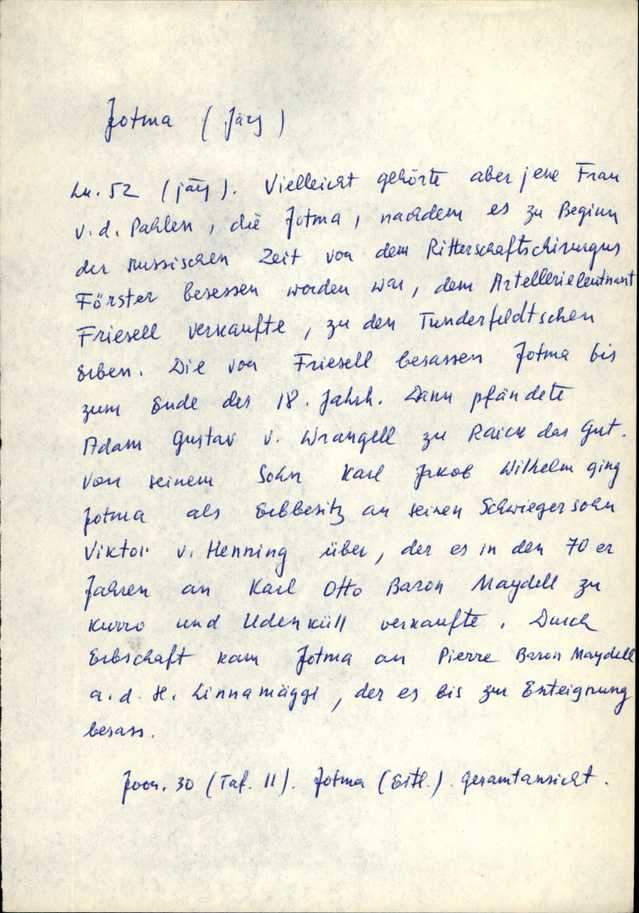 Jotma (Järj)
Lk. 52 (järj). Vielleicht gehörte aber jene Frau
v. d. Pahlen, die Jotma, nachdem es zu Beginn
der russischen Zeit von dem Ritterschaftschirurgus
Förster besessen worden war, dem Artellerieleutnant
Friesell verkaufte, zu den Tunderfeldtschen
Erben. Die von Friesell besassen Jotma bis
zum Ende des 18. Jahrh. Dann pfändete
Adam Gustav v. Wrangell zu Raick das Gut.
Von seinem Sohn Karl Jakob Wilhelm ging
Jotma als Erbbesitz an seinen Schwiegersohn
Viktor v. Henning über, der es in den 70er
Jahren an Karl Otto Baron Maydell zu
Kurro und Udenküll verkaufte. Durch
Erbschaft kam Jotma an Pierre Baron Maydell
a. d. H. Linnamäggi, der es bis zur Enteignung
besass.
Joon. 30 (Taf. 11). Jotma (Estl.). Gesamtansicht.